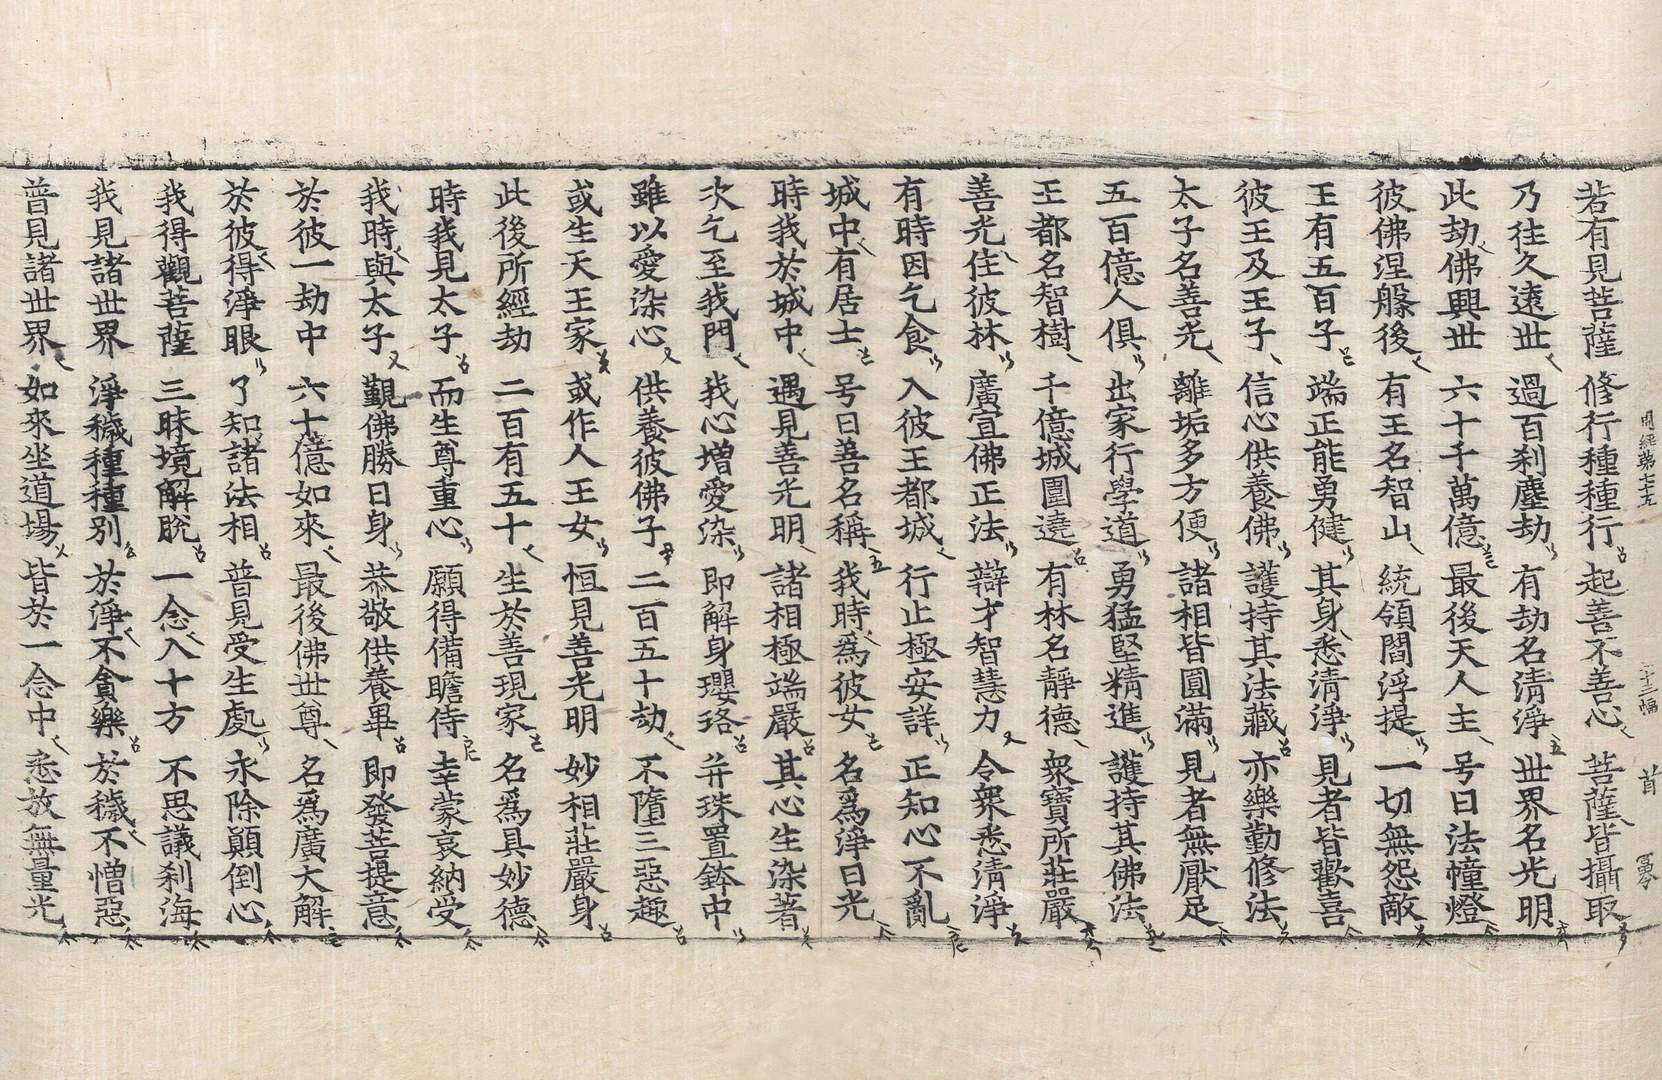 若有見菩薩 修行種種行 起善不善心 菩薩皆攝取
乃往久遠世 過百刹塵劫 有劫名清淨 世界名光明
此劫佛興世 六十千萬億 最後天人主 号曰法幢燈
彼佛涅槃後 有王名智山 統領閻浮提 一切無怨敵
王有五百子 端正能勇健 其身悉清淨 見者皆歡喜
彼王及王子 信心供養佛 護持其法藏 亦樂勤修法
太子名善光 離垢多方便 諸相皆圓滿 見者無厭足
五百億人俱 出家行學道 勇猛堅精進 護持其佛法
王都名智樹 千億城圍遶 有林名靜德 衆寶所莊嚴
善光住彼林 廣宣佛正法 辯才智慧力 令衆悉清淨
有時因乞食 入彼王都城 行止極安詳 正知心不亂
城中有居士 号曰善名稱 我時爲彼女 名爲淨日光
時我於城中 遇見善光明 諸相極端嚴 其心生染著
次乞至我門 我心增愛染 即解身瓔珞 并珠置鉢中
雖以愛染心 供養彼佛子 二百五十劫 不墮三惡趣
或生天王家 或作人王女 恒見善光明 妙相莊嚴身
此後所經劫 二百有五十 生於善現家 名爲具妙德
時我見太子 而生尊重心 願得備瞻侍 幸蒙哀納受
我時與太子 覲佛勝日身 恭敬供養畢 即發菩提意
於彼一劫中 六十億如來 最後佛世尊 名爲廣大解
於彼得淨眼 了知諸法相 普見受生處 永除顚倒心
我得觀菩薩 三昧境解脫 一念入十方 不思議刹海
我見諸世界 淨穢種種別 於淨不貪樂 於穢不憎惡
普見諸世界 如來坐道場 皆於一念中 悉放無量光